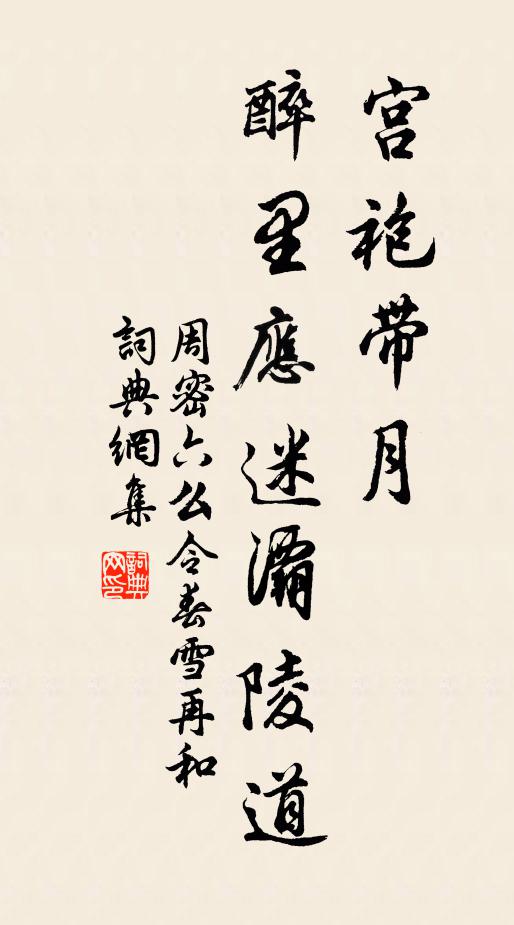 宫袍带月
醉里應迷灞陵道
周密六么令春雪再和
詞典網集
詞典網印